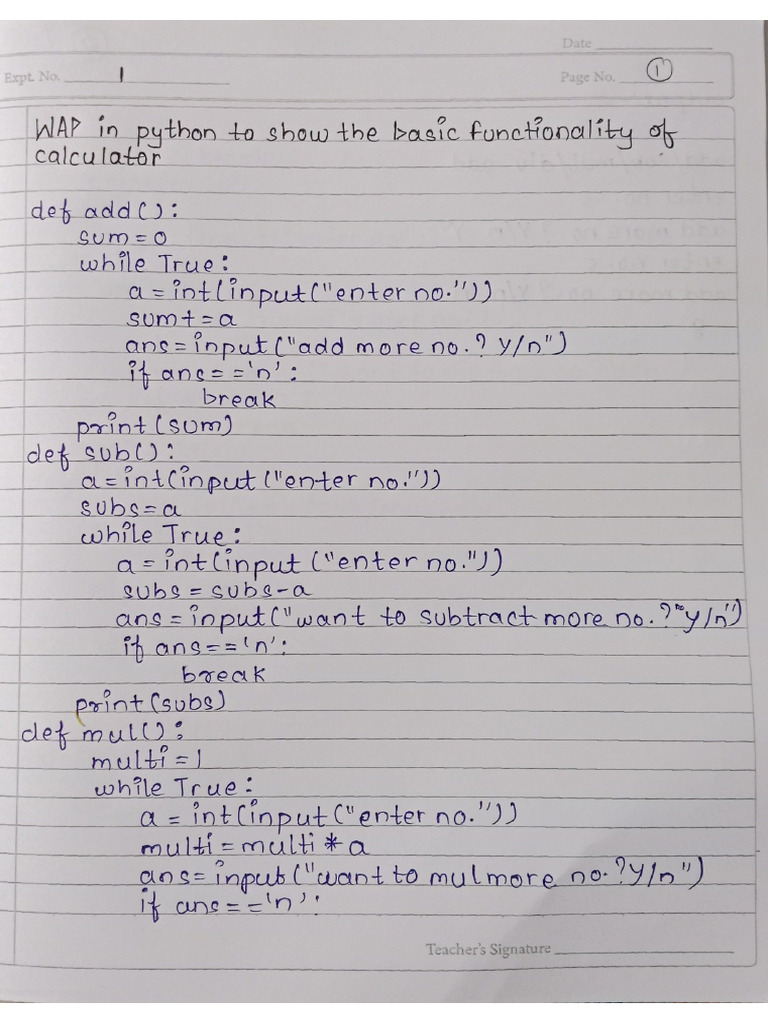 Date
Expt. No. 1
Page No. 1
WAP in python to show the basic functionality of
calculator
def add():
sum=0
while True:
a=int(input("enter no."))
sum+=a
ans=input("add more no.? Y/n")
if ans=='n':
break
print(sum)
def sub():
a=int(input("enter no."))
subs=a
while True:
a=int(input("enter no."))
subs=subs-a
ans=input("want to subtract more no.?" y/n")
if ans=='n':
break
print(subs)
def mul():
multi=1
while True:
a=int(input("enter no."))
multi=multi*a
ans=input("want to mul more no.?Y/n")
if ans=='n':
Teacher's Signature